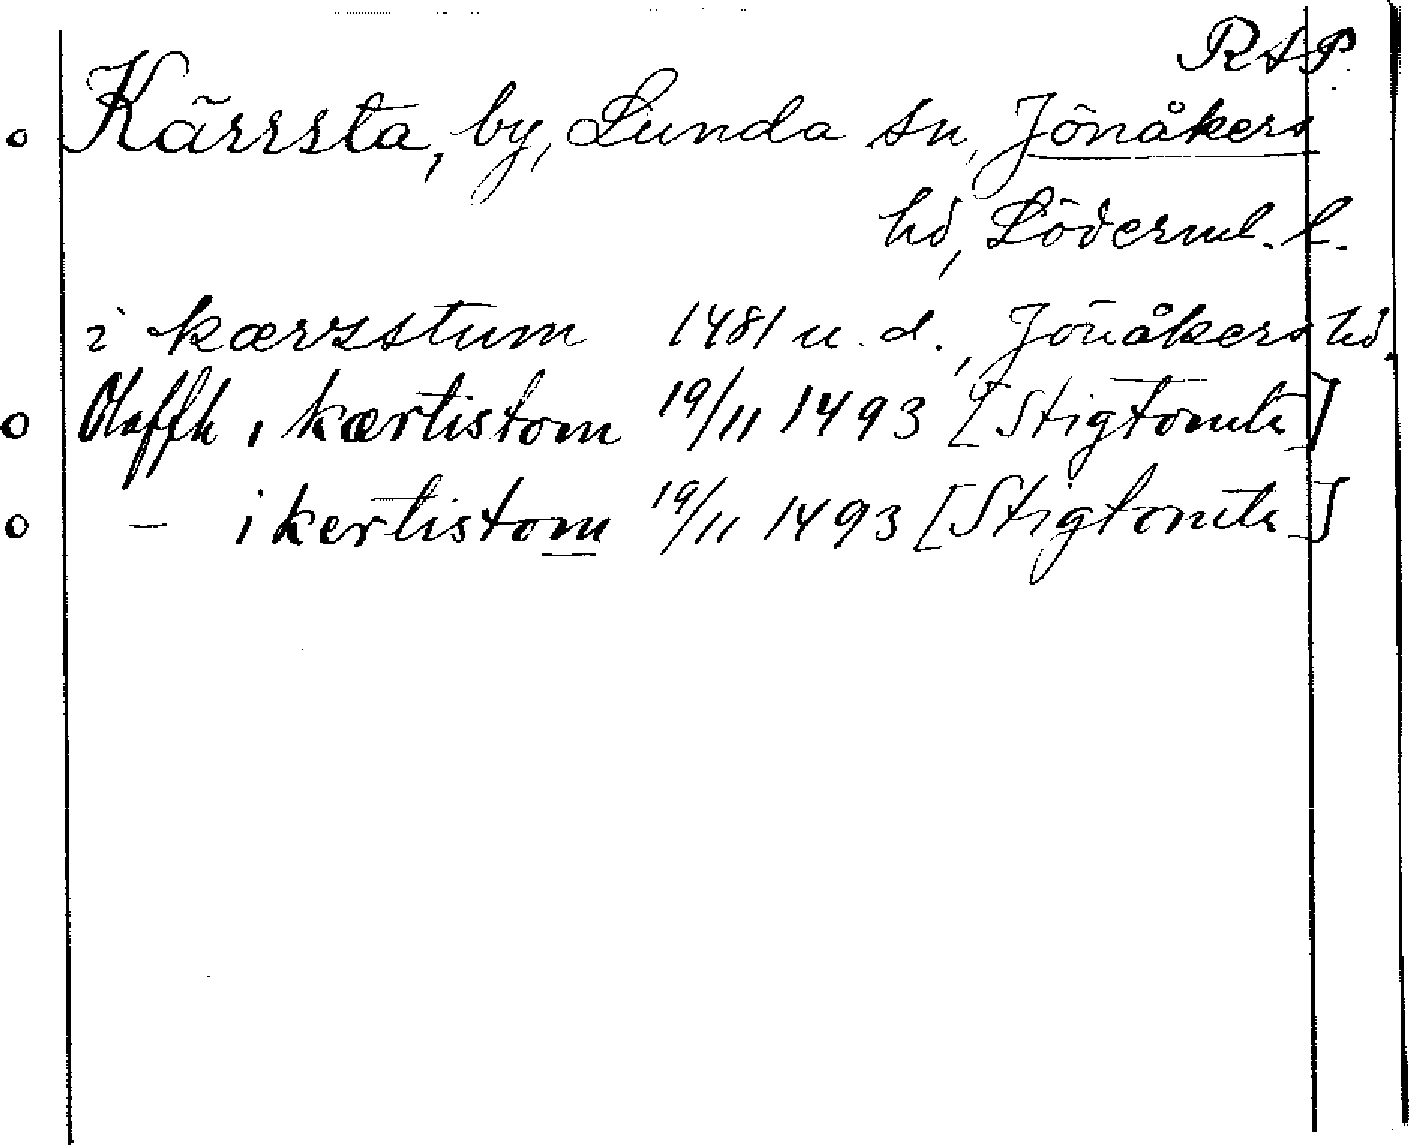 RAP.
Kärrsta, by, Lunda sn, Jönåkers
hd, Söderml. l.
i kærzstum 1481 u. d., Jönåkers hd.
Olaffh i kærtistom 19/11 1493 [Stigtomta]
– i kertistom 19/11 1493 [Stigtomta]